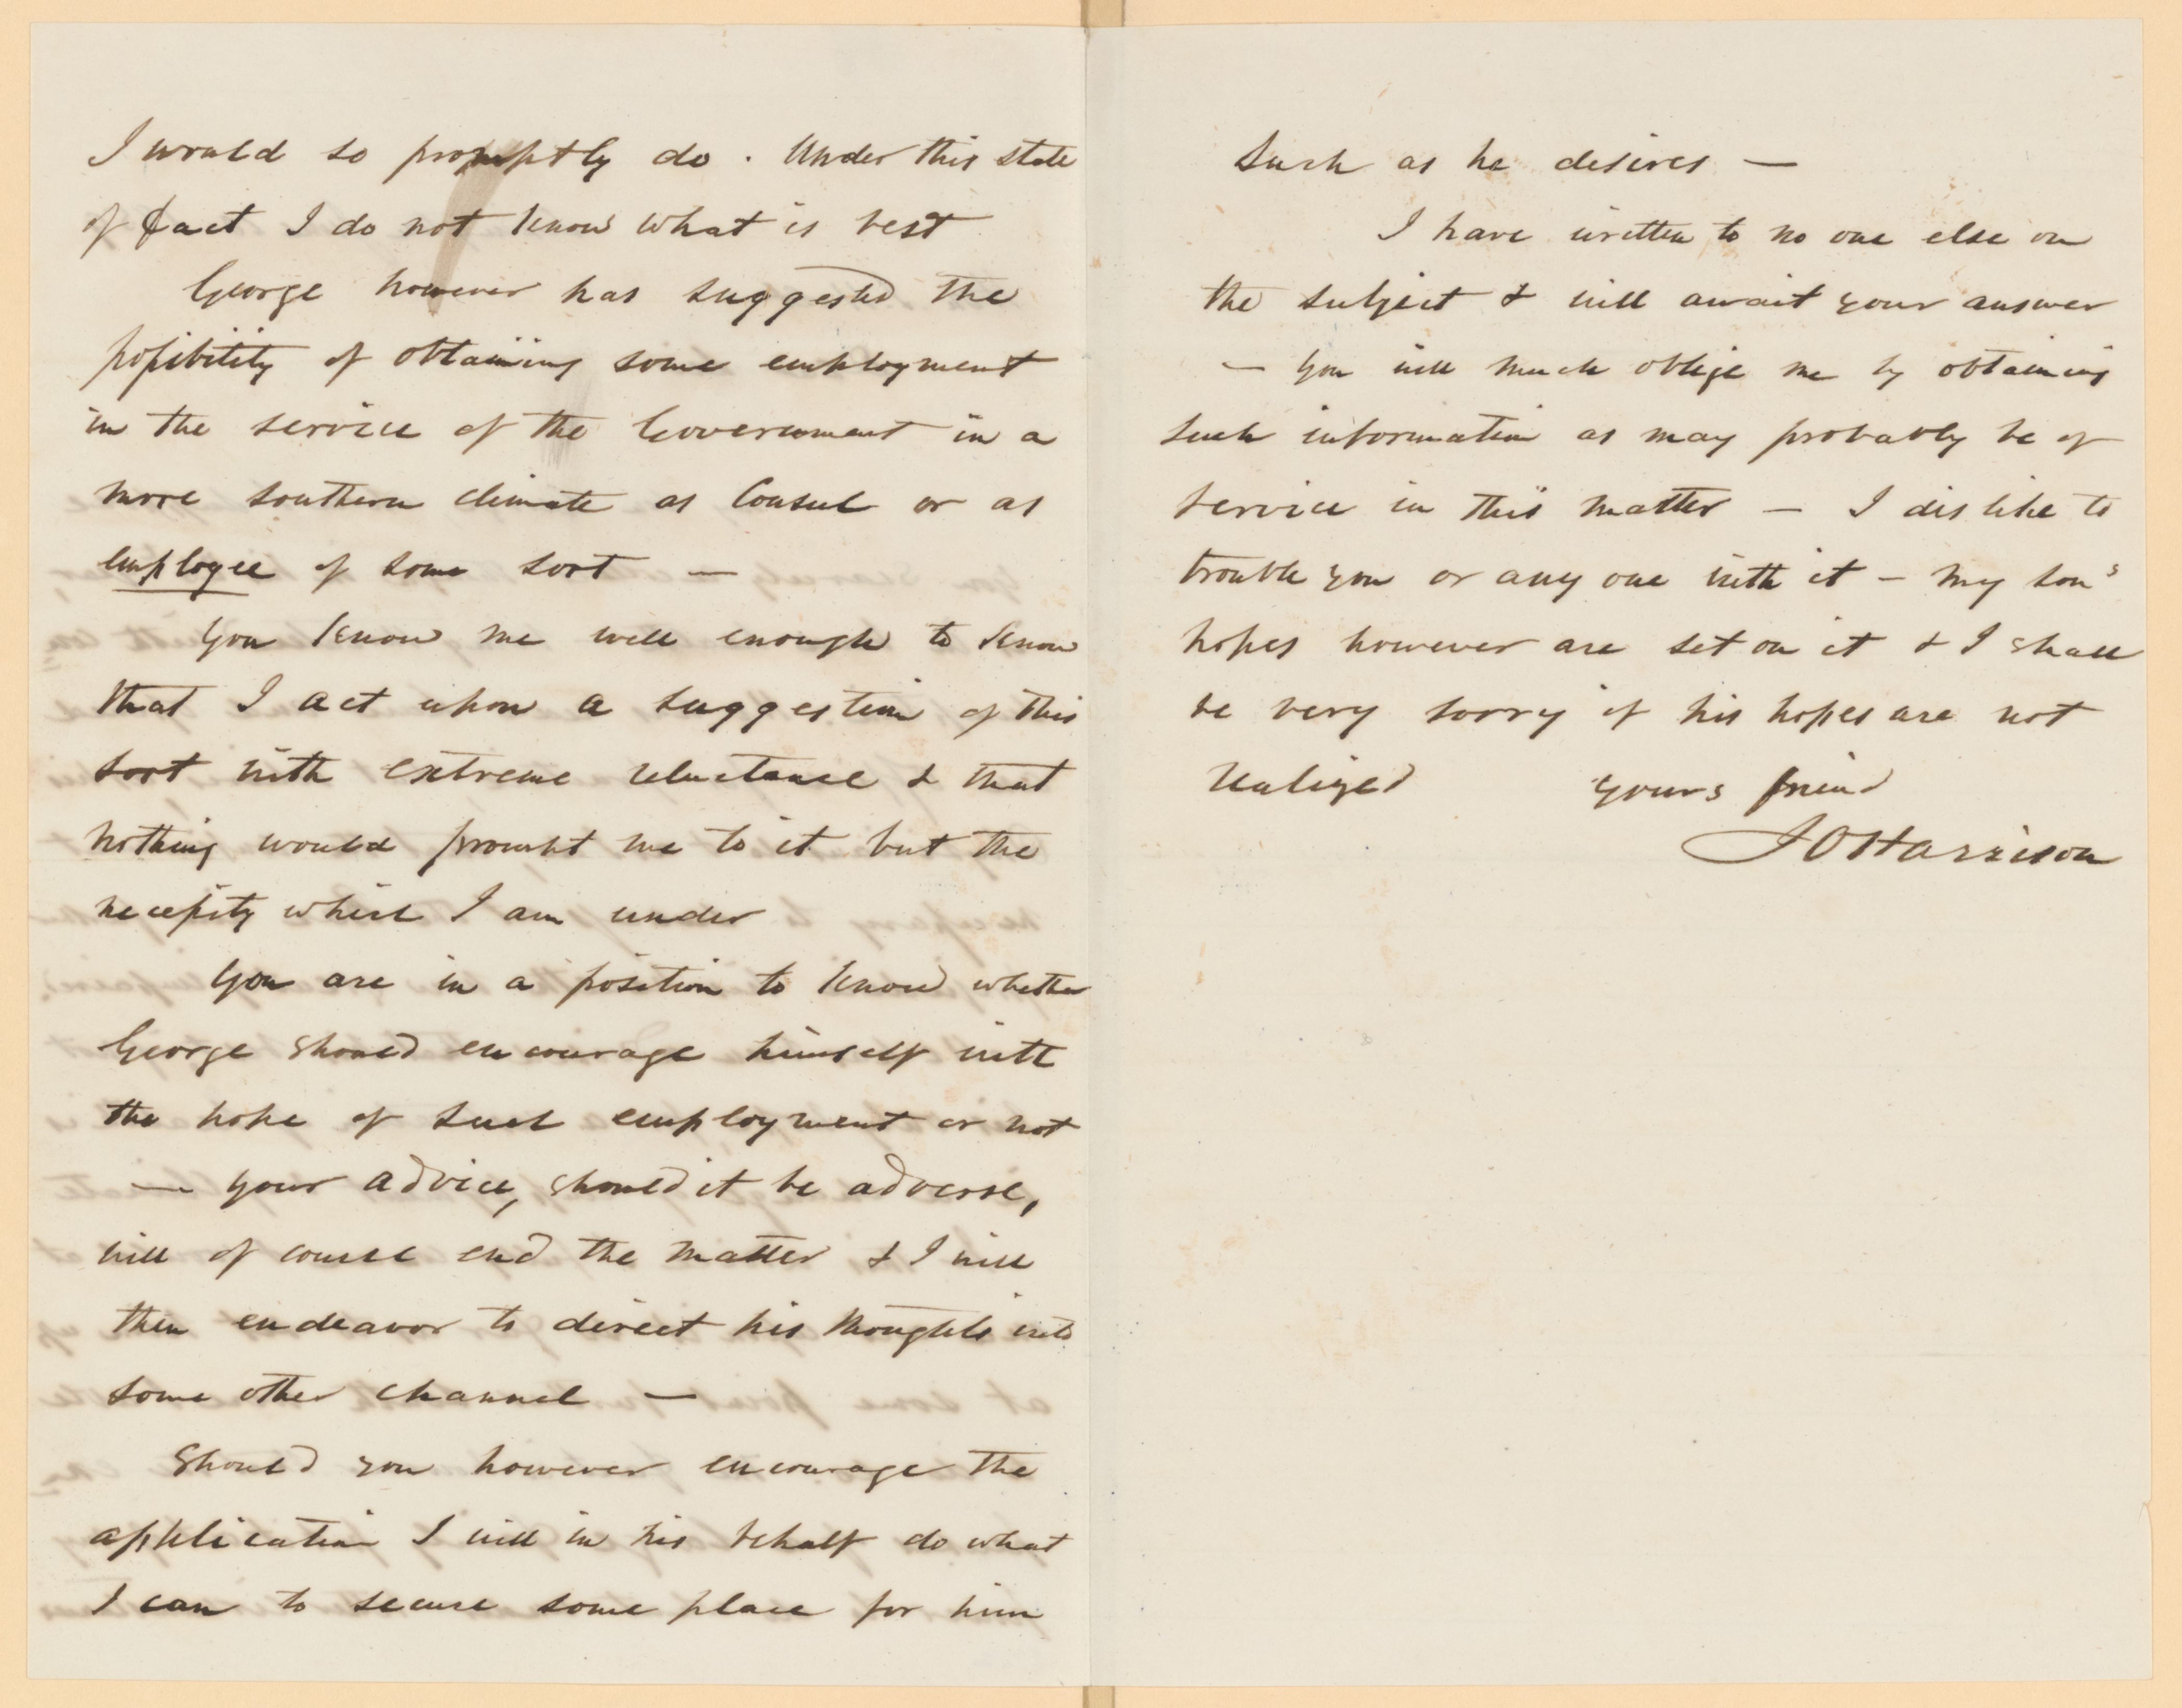 I would so promptly do. Under this state
of fact I do not know what is best
George however has suggested the
possibility of obtaining some employment
in the service of the Government in a
more southern climate as Consul or as
employee of some sort —
You know me well enough to know
that I act upon a suggestion of this
sort with extreme reluctance & that
nothing would prompt me to it but the
necessity which I am under
You are in a position to know whether
George should encourage himself with
the hope of such employment or not
— your advice, should it be adverse,
will of course end the matter & I will
then endeavor to direct his thoughts into
some other channel —
Should you however encourage the
application I will in his behalf do what
I can to secure some place for him
such as he desires —
I have written to no one else on
the subject & will await your answer
— You will much oblige me by obtaining
such information as may probably be of
service in this matter — I dislike to
trouble you or any one with it – my son's
hopes however are set on it & I shall
be very sorry if his hopes are not
realized yours friend
J O Harrison